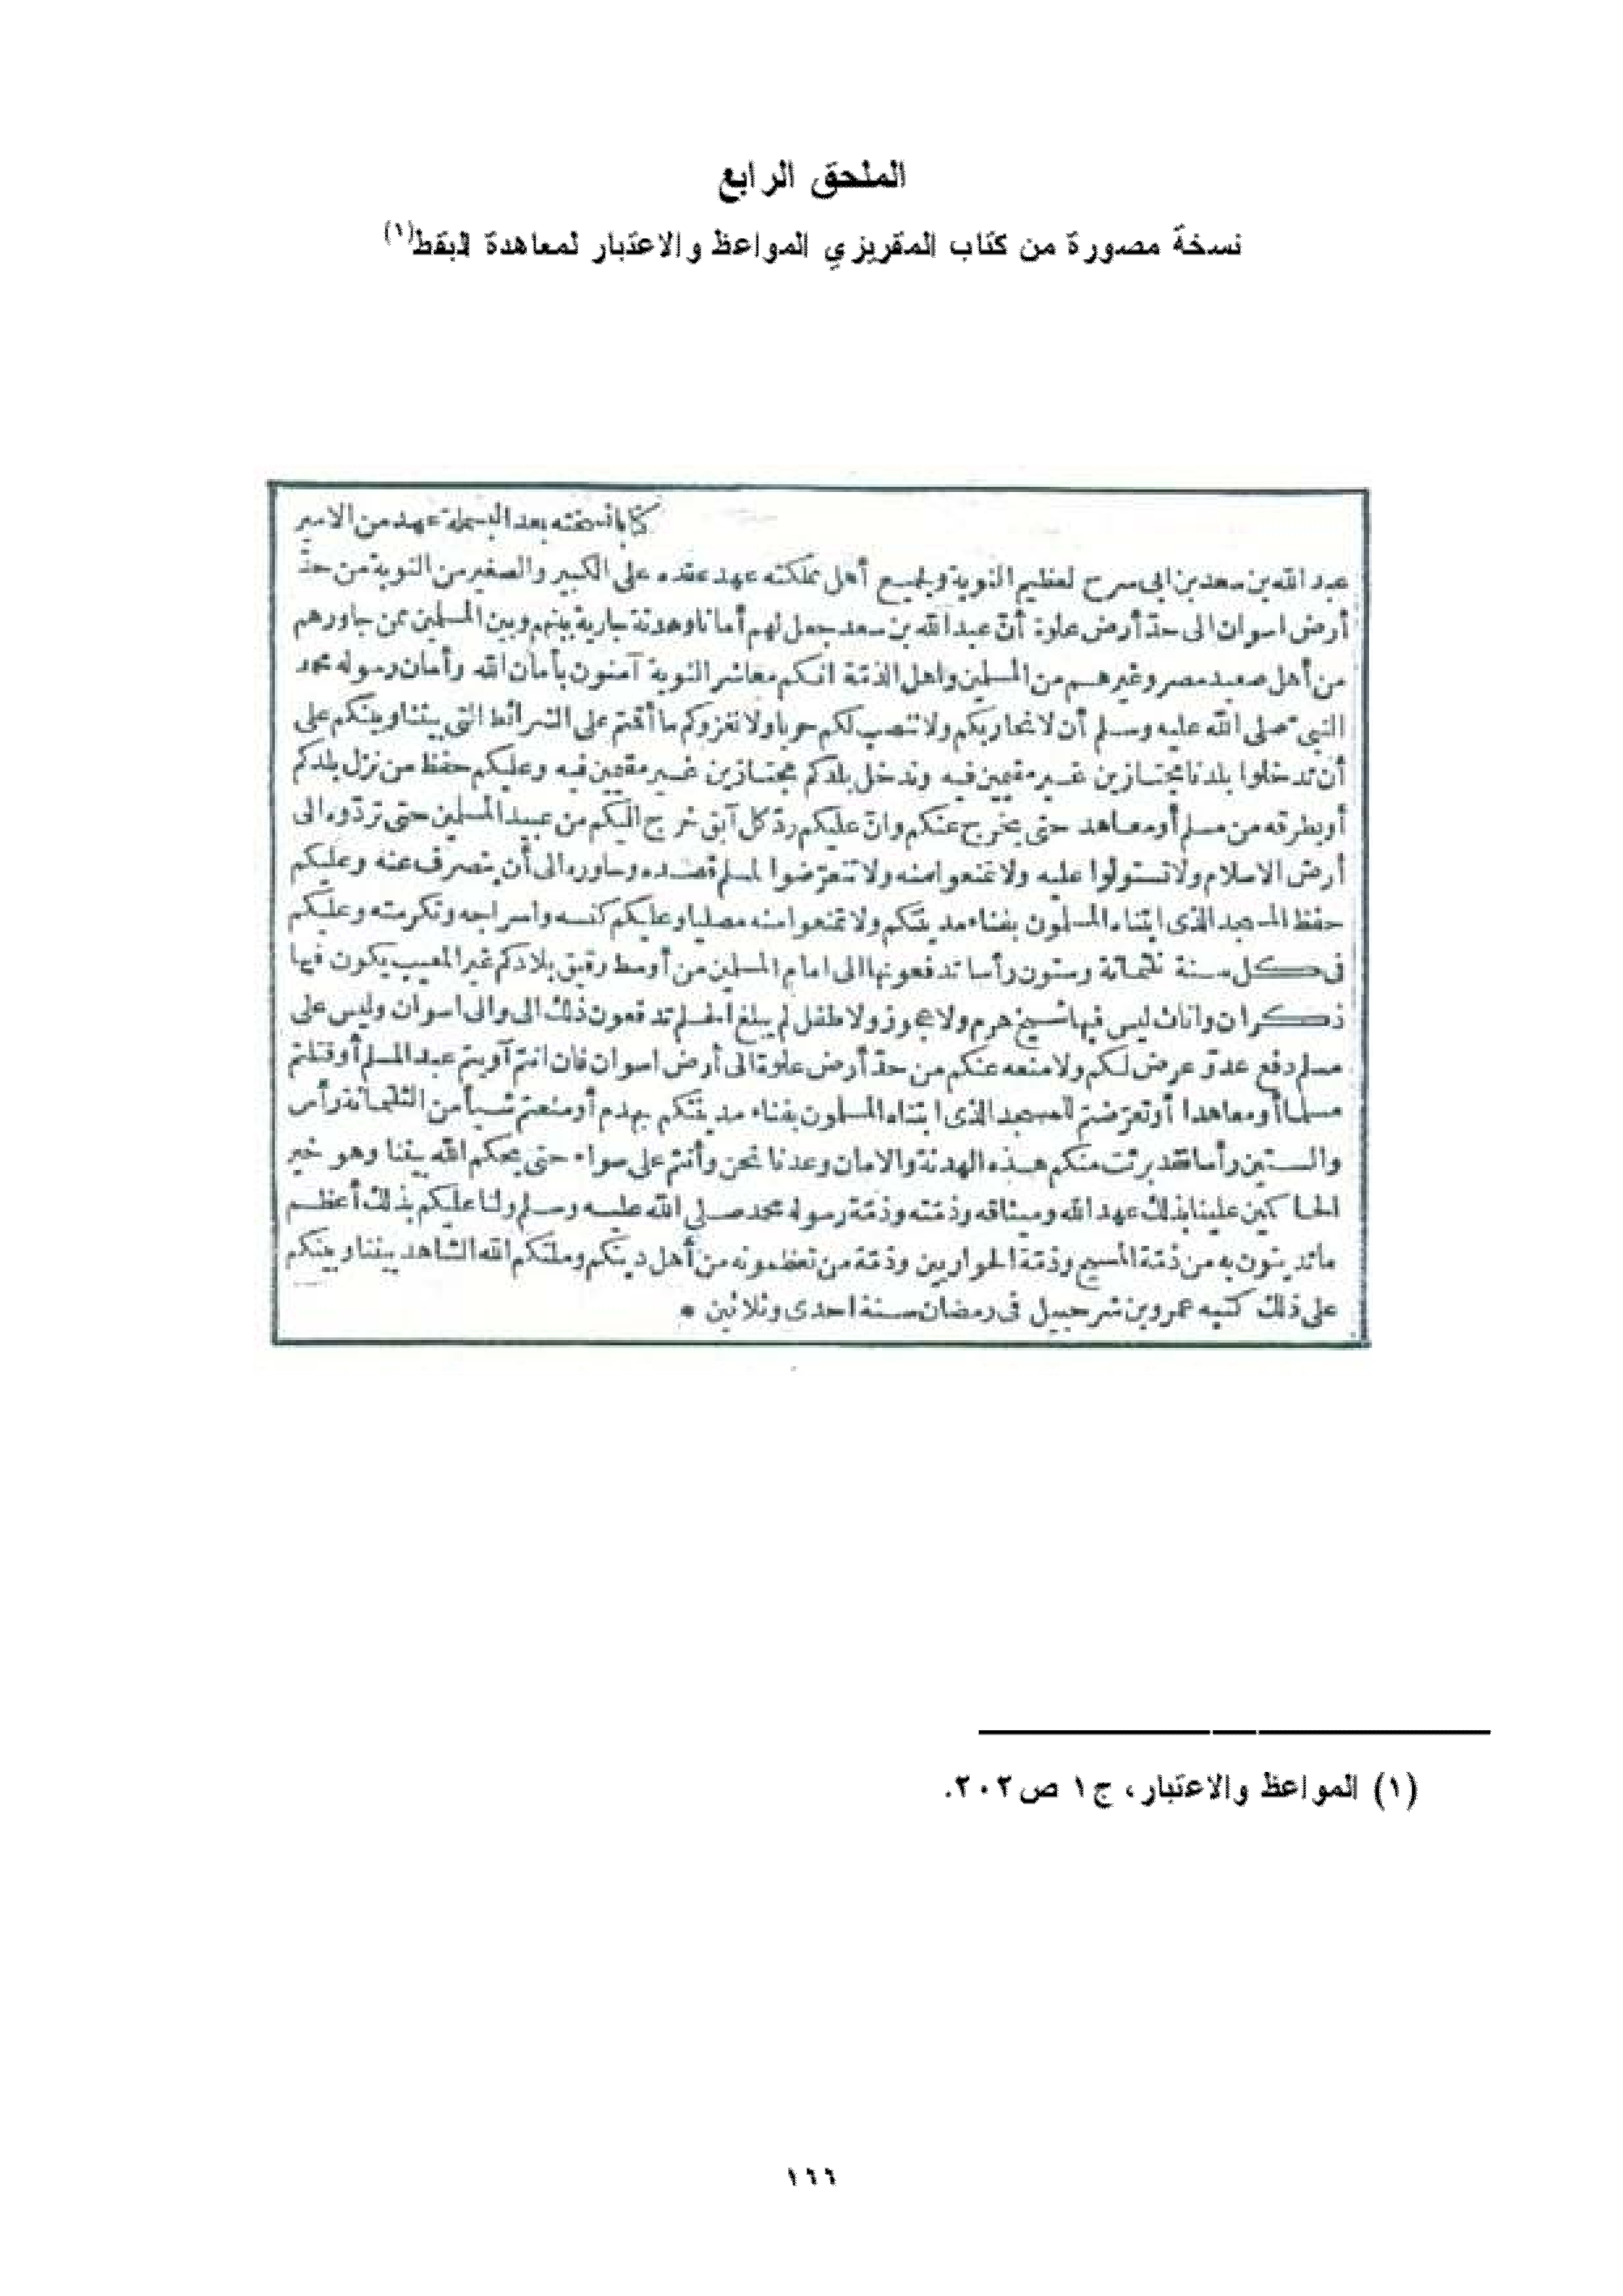 الملحق الرابع
نسخة مصورة من كتاب المقريزي المواعظ والاعتبار لمعاهدة البقط(١)
كتابا نسخته بعد البسملة عهد من الامير
عبد الله بن سعد بن ابى سرح لعظيم النوبة ولجميع أهل مملكته عهد عقده على الكبير والصغير من النوبة من حدّ
أرض اسوان الى حدّ أرض علوة أنّ عبد الله بن سعد جعل لهم أمانا وهدنة جارية بينهم وبين المسلمين ممن جاورهم
من أهل صعيد مصر وغيرهم من المسلمين واهل الذمّة انكم معاشر النوبة آمنون بأمان الله وأمان رسوله محمد
النبىّ صلى الله عليه وسلم أن لا نحاربكم ولا ننصب لكم حربا ولا نغزوكم ما أقتم على الشرائط التى بيننا وبينكم على
أن تدخلوا بلدنا مجتازين غير مقيمين فيه وندخل بلدكم مجتازين غير مقيمين فيه وعليكم حفظ من نزل بلدكم
أو بطرقه من مسلم أو معاهد حتى يخرج عنكم وانّ عليكم ردّ كل آبق خرج اليكم من عبيد المسلمين حتى تردّوه الى
أرض الاسلام ولا تستولوا عليه ولا تمنعوا منه ولا تتعرّضوا لمسلم قصده وحاوره الى أن ينصرف عنه وعليكم
حفظ المسجد الذى ابتناه المسلمون بفناء مدينتكم ولا تمنعوا منه مصليا وعليكم كنسه واسراجه وتكرمته وعليكم
فى كل سنة ثلثمائة وستون رأسا تدفعونها الى امام المسلمين من أوسط رقيق بلادكم غير المعيب يكون فيها
ذكران واناث ليس فيها شيخ هرم ولا عجوز ولا طفل لم يبلغ الحلم تدفعون ذلك الى والى اسوان وليس على
مسلم دفع عدوّ عرض لكم ولا منعه عنكم من حدّ أرض علوة الى أرض اسوان فان انتم آويتم عبد المسلم أو قتلتم
مسلما أو معاهدا أو تعرّضتم للمسجد الذى ابتناه المسلمون بفناء مدينتكم بهدم أو منعتم شيأ من الثلثمائة رأس
والستين رأسا فقد برئت منكم هذه الهدنة والامان وعدنا نحن وأنتم على سواء حتى يحكم الله بيننا وهو خير
الحاكمين علينا بذلك عهد الله وميثاقه وذمّته وذمّة رسوله محمد صلى الله عليه وسلم ولنا عليكم بذلك أعظم
ما تدينون به من ذمّة المسيح وذمّة الحواريين وذمّة من تعظمونه من أهل دينكم وملتكم الله الشاهد بيننا وبينكم
على ذلك كتبه عمرو بن شرحبيل فى رمضان سنة احدى وثلاثين *
(١) المواعظ والاعتبار، ج١ ص٢٠٢.
١٦٦